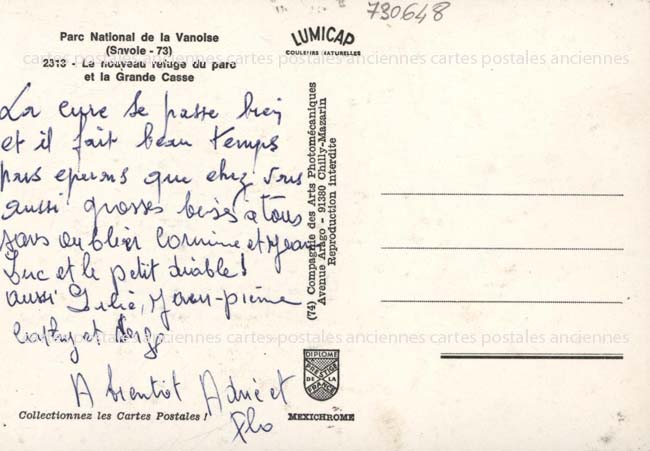 730648
Parc National de la Vanoise
(Savoie - 73)
2313 - Le nouveau refuge du parc
et la Grande Casse
LUMICAP
COULEURS NATURELLES
cartes postales anciennes cartes postales anciennes cartes postales anciennes
La cure se passe bien
et il fait beau temps
nous esperons que chez vous
aussi grosses bises a tous
sans oublier Corinne et Jean
Luc et le petit diable!
aussi Julie, Jean-pierre
et
A bientot et
Flo
(74) Compagnie des Arts Photomécaniques
Avenue Arago - 91380 Chilly-Mazarin
Reproduction interdite
cartes postales anciennes cartes postales anciennes cartes postales anciennes
DIPLOME
PRESTIGE
DE LA
FRANCE
MEXICHROME
Collectionnez les Cartes Postales !